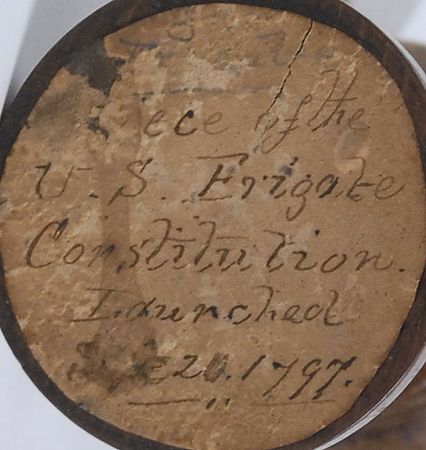 Piece of the
U. S. Frigate
Constitution.
Launched
1797.